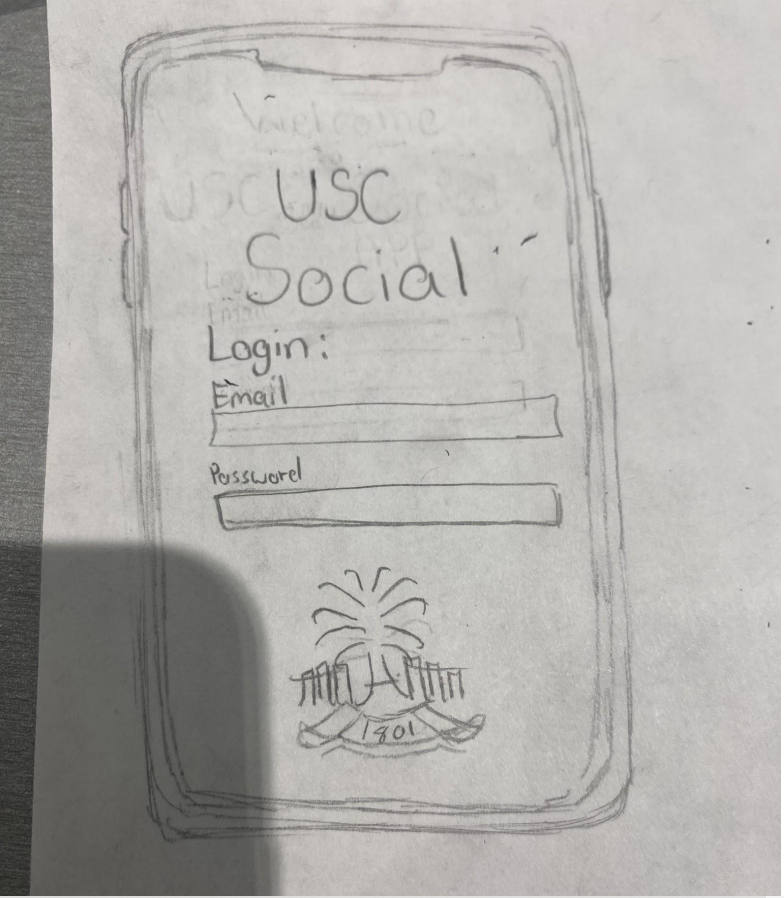 Welcome
USC
Social
Login:
Email
Password
1801